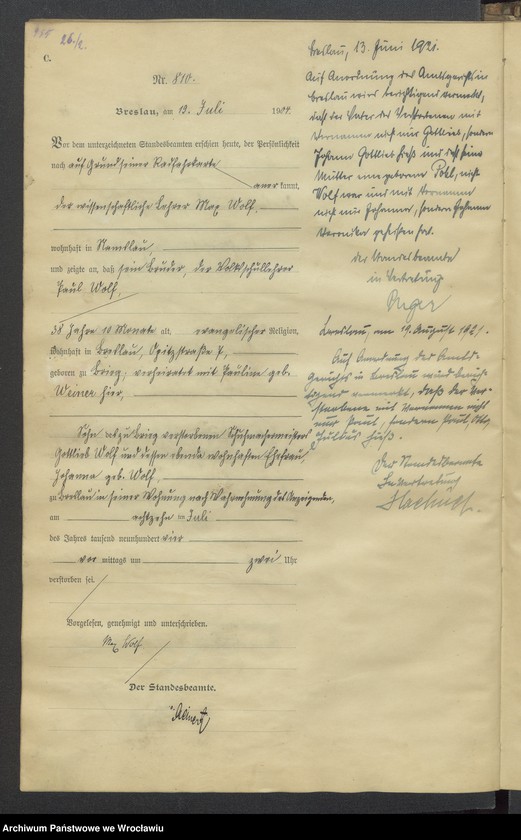 26./2.
C.
Nr. 810.
Breslau, am 19. Juli 1904.
Vor dem unterzeichneten Standesbeamten erschien heute, der Persönlichkeit
nach auf Grund seiner Radfahrkarte
anerkannt,
der wissenschaftliche Lehrer Max Wolf,
wohnhaft in Namslau,
und zeigte an, daß sein Bruder, der Volksschullehrer
Paul Wolf,
38 Jahre 10 Monate alt, evangelischer Religion,
wohnhaft in Breslau, Opitzstraße 7,
geboren zu Brieg, verheiratet mit Pauline geb.
Weiner hier,
Sohn des zu Brieg verstorbenen Schuhmachermeisters
Gottlieb Wolf und dessen ebenda wohnhaften Ehefrau
Johanna geb. Wolf
zu Breslau in seiner Wohnung nach Wahrnehmung des Anzeigenden,
am achtzehn ten Juli
des Jahres tausend neunhundert vier
vor mittags um zwei Uhr
verstorben sei.
Vorgelesen, genehmigt und unterschrieben.
Max Wolf
Der Standesbeamte.
Breslau, 13. Juni 1921.
Auf Anordnung des Amtsgerichts in
Breslau wird berichtigend vermerkt,
daß der Vater des Verstorbenen mit
Vornamen nicht nur Gottlieb, sondern
Johann Gottlieb hieß und daß seine
Mutter eine geborene Pohl, nicht
Wolf war und mit Vornamen
nicht nur Johanna, sondern Johanna
Veronika geheißen hat.
Der Standesbeamte
in Vertretung
Breslau, am 19. August 1921.
Auf Anordnung des Amts-
gerichts in Breslau wird berich-
tigend vermerkt, daß der Ver-
storbene mit Vornamen nicht
nur Paul, sondern Paul Otto
Julius hieß.
Der Standesbeamte
In Vertretung
Archiwum Państwowe we Wrocławiu